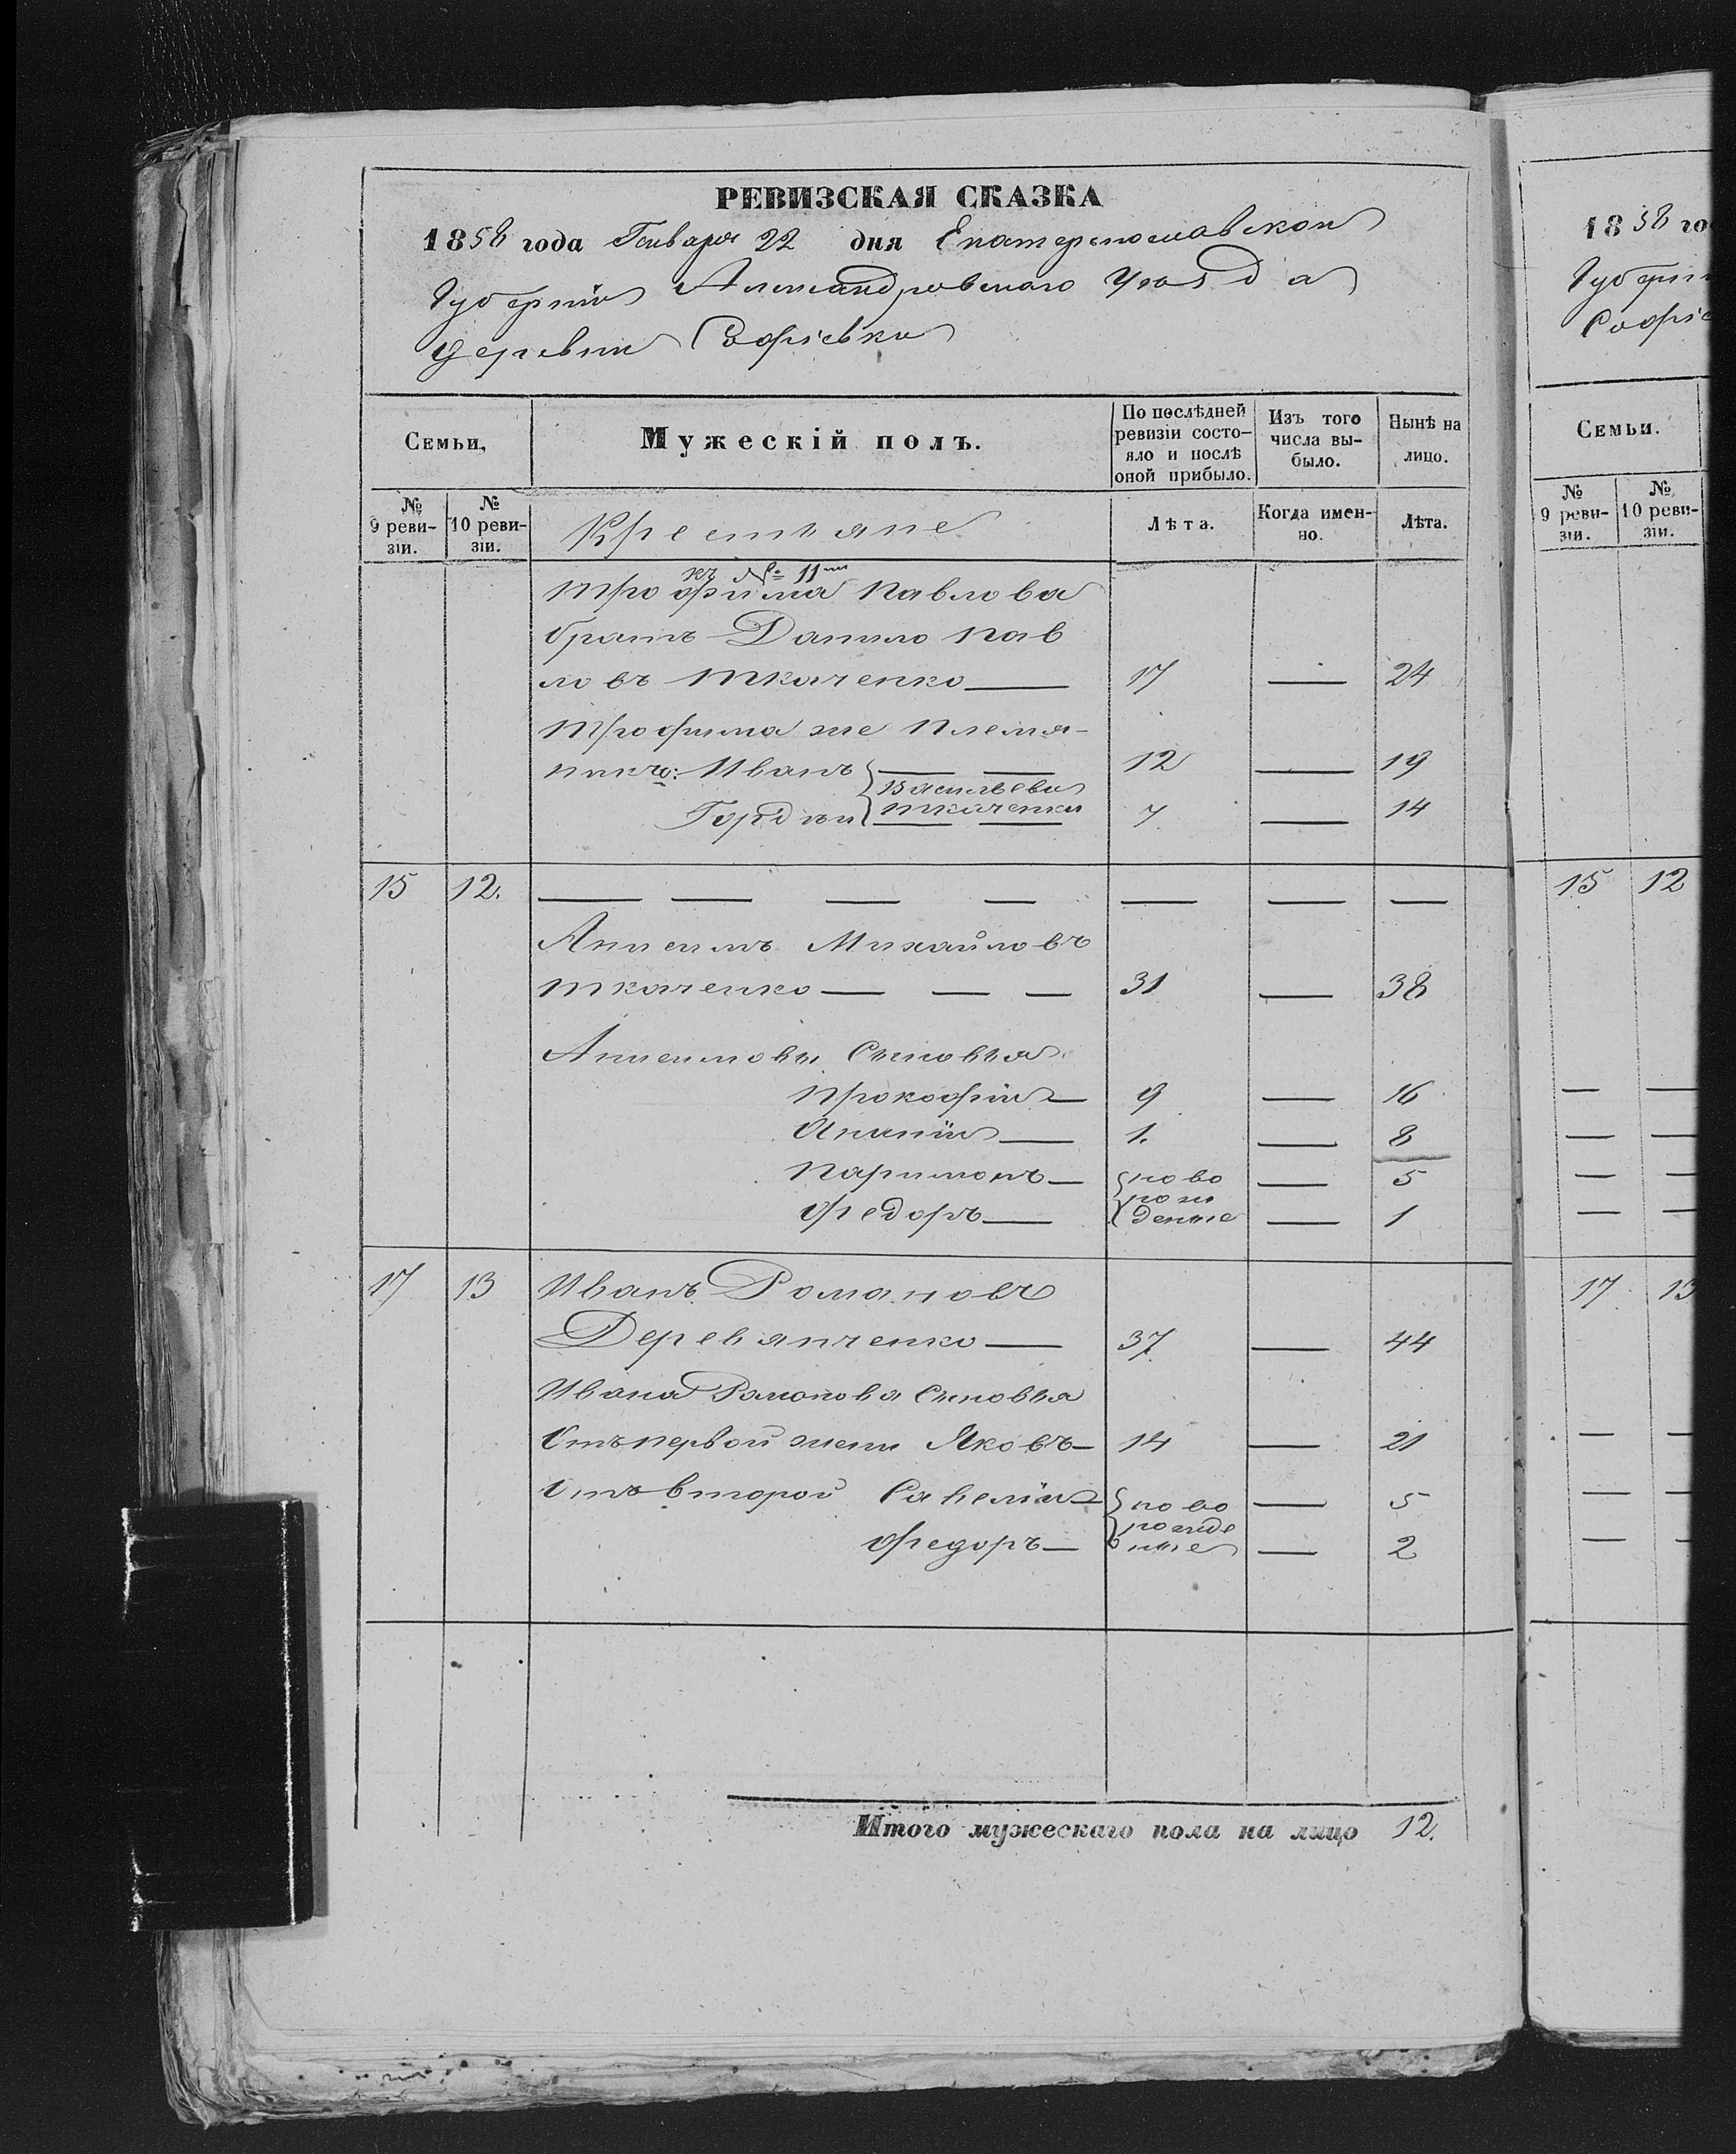 РЕВИЗСКАЯ СКАЗКА
1858 года Генваря 22 дня Екатеринославской
Губерніи Александровскаго Уѣзда
деревни Софіевки
Семьи,
Мужескій полъ.
По послѣдней ревизіи состо-
яло и послѣ
оной прибыло.
Изъ того
числа вы-
было.
Нынѣ на
лицо.
№
9 реви-
зіи.
№
10 реви-
зіи.
Крестьяне
Лѣта.
Когда имен-
но.
Лѣта.
къ № 11му
Трофима Павлова
братъ Данило Пав
ловъ Ткаченко — 17 — 24
Трофима же Племя-
нник: Иванъ — — 12 — 19
Васильевы
Ткаченки
Гордѣй — — 7 — 14
15 12. — — — — — — —
Анисимъ Михайловъ
Ткаченко — — — 31 — 38
Анисимовы Сыновья
Прокофій — 9 — 16
Ананій — 1. — 8
Паримонъ — ново — 5
рож
Федоръ — денные — 1
17 13 Иванъ Романовъ
Деревянченко — 37 — 44
Ивана Романова Сыновья
Отъ первой жены Яковъ — 14 — 21
Отъ второй Савелій — ново — 5
рожде
Федоръ — нные — 2
Итого мужескаго пола на лицо 12.
1858 го
Губерні
Софіе
Семьи.
№
9 реви-
зіи.
№
10 реви-
зіи.
15 12
— —
— —
— —
— —
17 13
— —
— —
— —